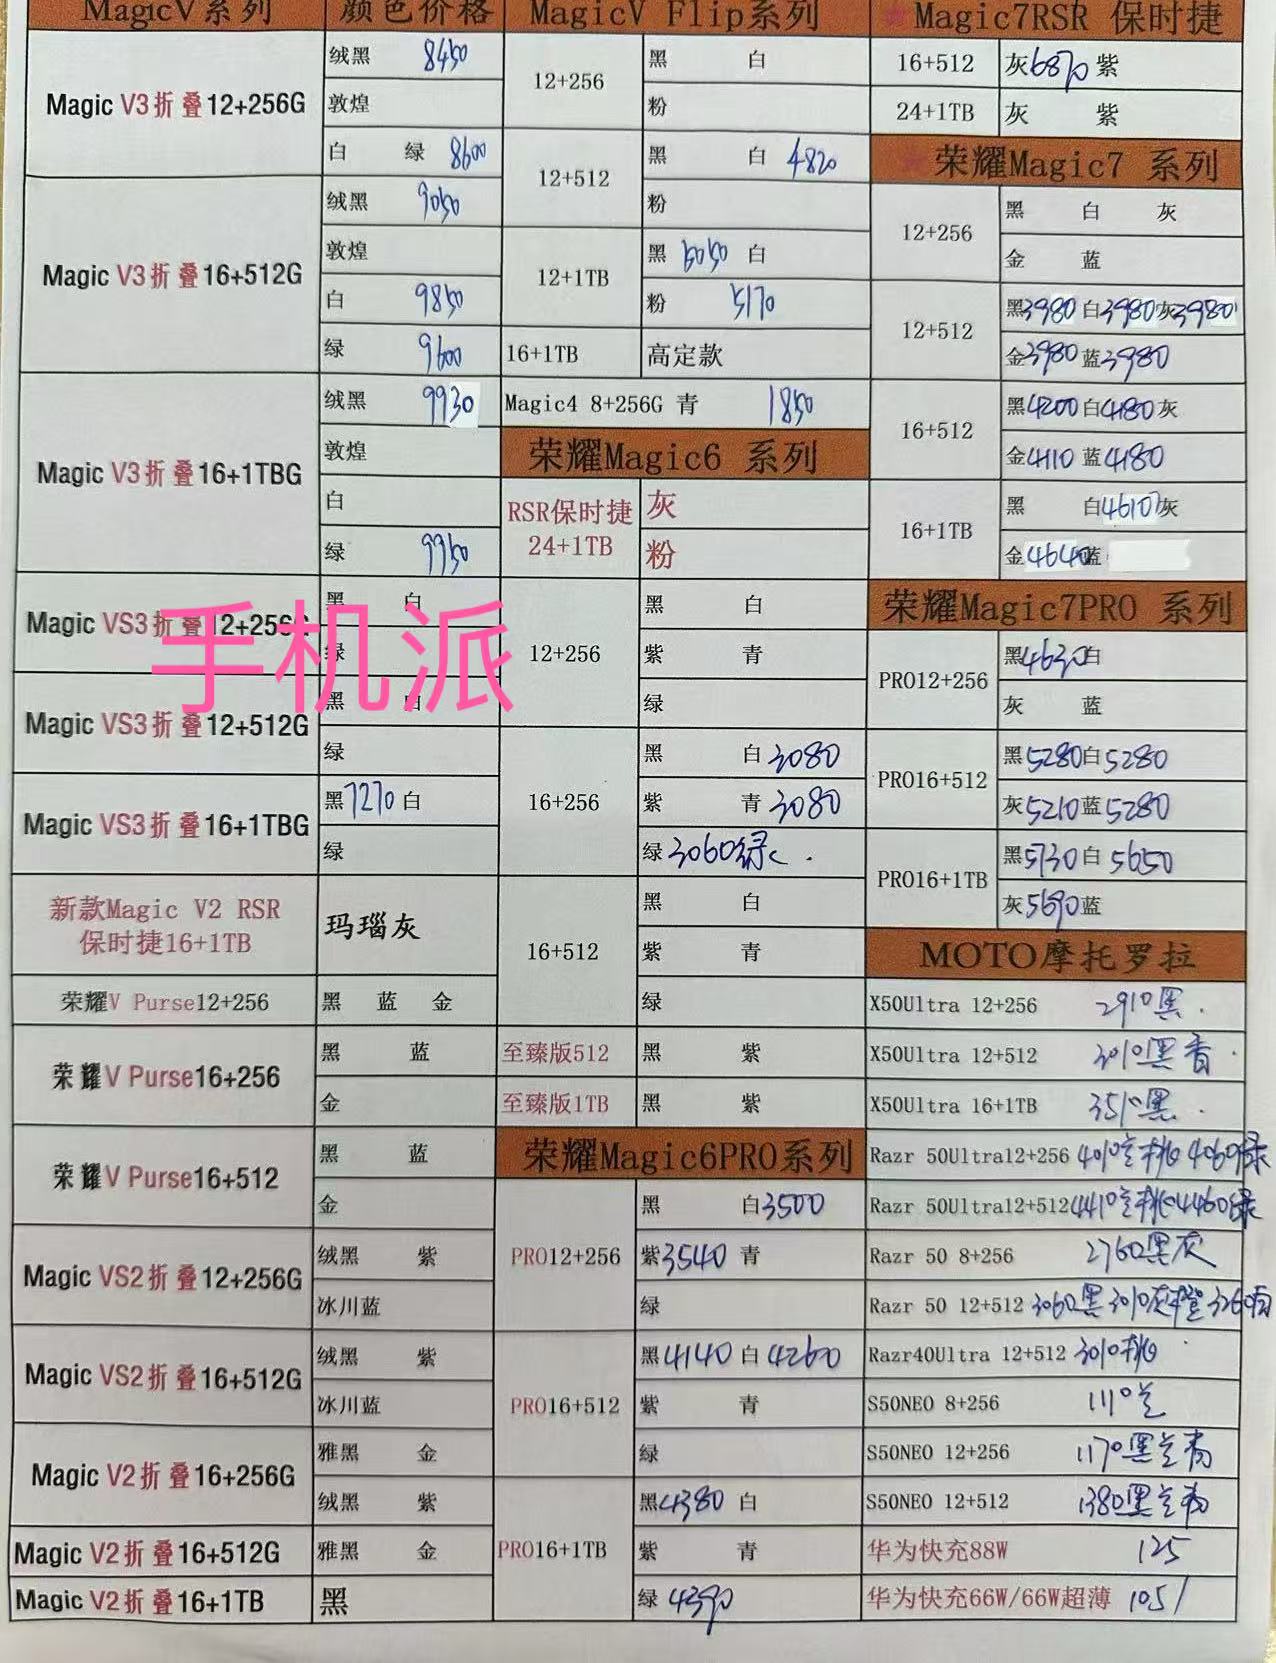 MagicV系列 颜色价格
Magic V3折叠12+256G
绒黑 8450
敦煌
白 绿 8600
Magic V3折叠16+512G
绒黑 9050
敦煌
白 9850
绿 9600
Magic V3折叠16+1TBG
绒黑 9930
敦煌
白
绿 9950
Magic VS3折叠12+256
黑 白
绿
手机派
Magic VS3折叠12+512G
黑 白
绿
Magic VS3折叠16+1TBG
黑7270白
绿
新款Magic V2 RSR
保时捷16+1TB
玛瑙灰
荣耀V Purse12+256
黑 蓝 金
荣耀V Purse16+256
黑 蓝
金
荣耀V Purse16+512
黑 蓝
金
Magic VS2折叠12+256G
绒黑 紫
冰川蓝
Magic VS2折叠16+512G
绒黑 紫
冰川蓝
Magic V2折叠16+256G
雅黑 金
绒黑 紫
Magic V2折叠16+512G
雅黑 金
Magic V2折叠16+1TB
黑
MagicV Flip系列
12+256
黑 白
粉
12+512
黑 白 4820
粉
12+1TB
黑 5050 白
粉 5170
16+1TB 高定款
Magic4 8+256G 青 1850
荣耀Magic6 系列
RSR保时捷
24+1TB
灰
粉
12+256
黑 白
紫 青
绿
16+256
黑 白 3080
紫 青 3080
绿 3060绿
16+512
黑 白
紫 青
绿
至臻版512 黑 紫
至臻版1TB 黑 紫
荣耀Magic6PRO系列
PRO12+256
黑 白3500
紫3540 青
绿
PRO16+512
黑4140 白4260
紫 青
绿
PRO16+1TB
黑4380 白
紫 青
绿 4390
Magic7RSR 保时捷
16+512 灰6870 紫
24+1TB 灰 紫
荣耀Magic7 系列
12+256
黑 白 灰
金 蓝
12+512
黑3980 白3980 灰3980
金3980 蓝3980
16+512
黑4200 白4180 灰
金4110 蓝4180
16+1TB
黑 白4610 灰
金4640 蓝
荣耀Magic7PRO 系列
PRO12+256
黑4630白
灰 蓝
PRO16+512
黑5280白5280
灰5210蓝5280
PRO16+1TB
黑5730白 5650
灰5690蓝
MOTO摩托罗拉
X50Ultra 12+256 2910黑
X50Ultra 12+512 3010黑
X50Ultra 16+1TB 3510黑
Razr 50Ultra12+256 4010兰桃 4060绿
Razr 50Ultra12+512 4410兰桃4460绿
Razr 50 8+256 2760黑灰
Razr 50 12+512 3060黑 3010灰橙
Razr40Ultra 12+512 3010桃
S50NEO 8+256 1110兰
S50NEO 12+256 1170黑兰
S50NEO 12+512 1380黑兰
华为快充88W 125
华为快充66W/66W超薄 105/